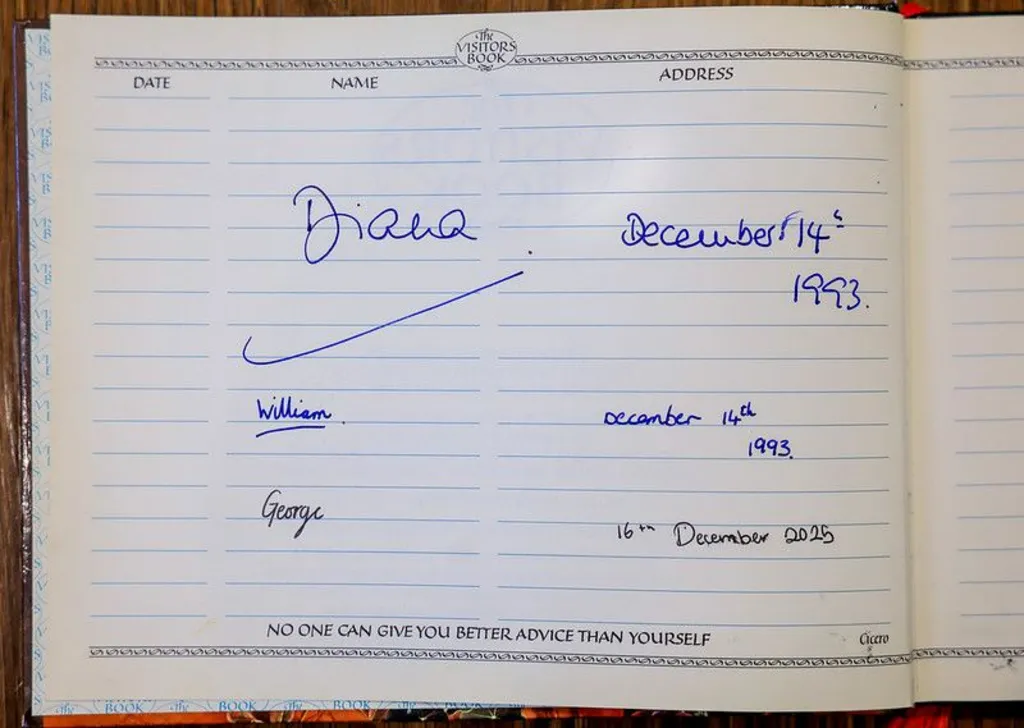 The
VISITORS
BOOK
DATE NAME ADDRESS
Diana December 14th
1993.
William December 14th
1993.
George 16th December 2025
NO ONE CAN GIVE YOU BETTER ADVICE THAN YOURSELF Cicero
The BOOK The BOOK The BOOK The BOOK